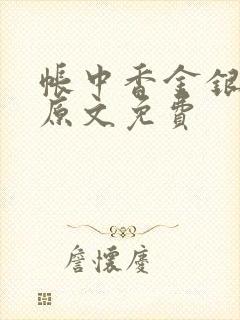 帳中香金銀
原文免費
詹懷慶